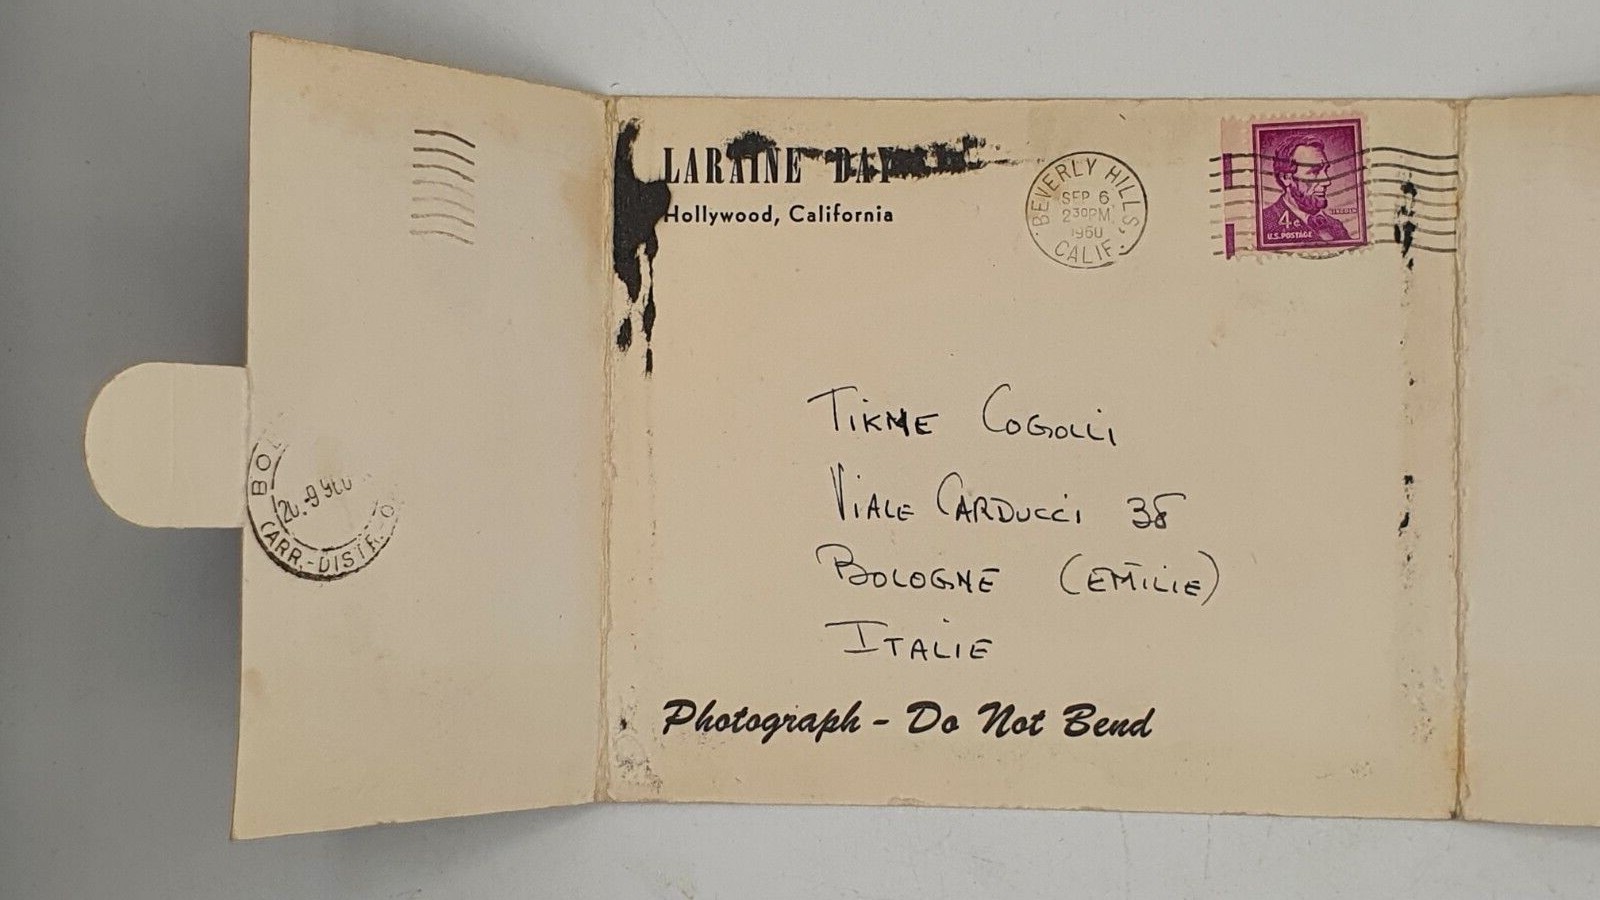 LARAINE DAY
Hollywood, California
BEVERLY HILLS, CALIF.
SEP 6
2 30 PM
1960
LINCOLN
4¢
U.S. POSTAGE
TIKME COGOLLI
VIALE CARDUCCI 38
BOLOGNE (EMILIE)
ITALIE
Photograph - Do Not Bend
BOL
CARR.-DISTR